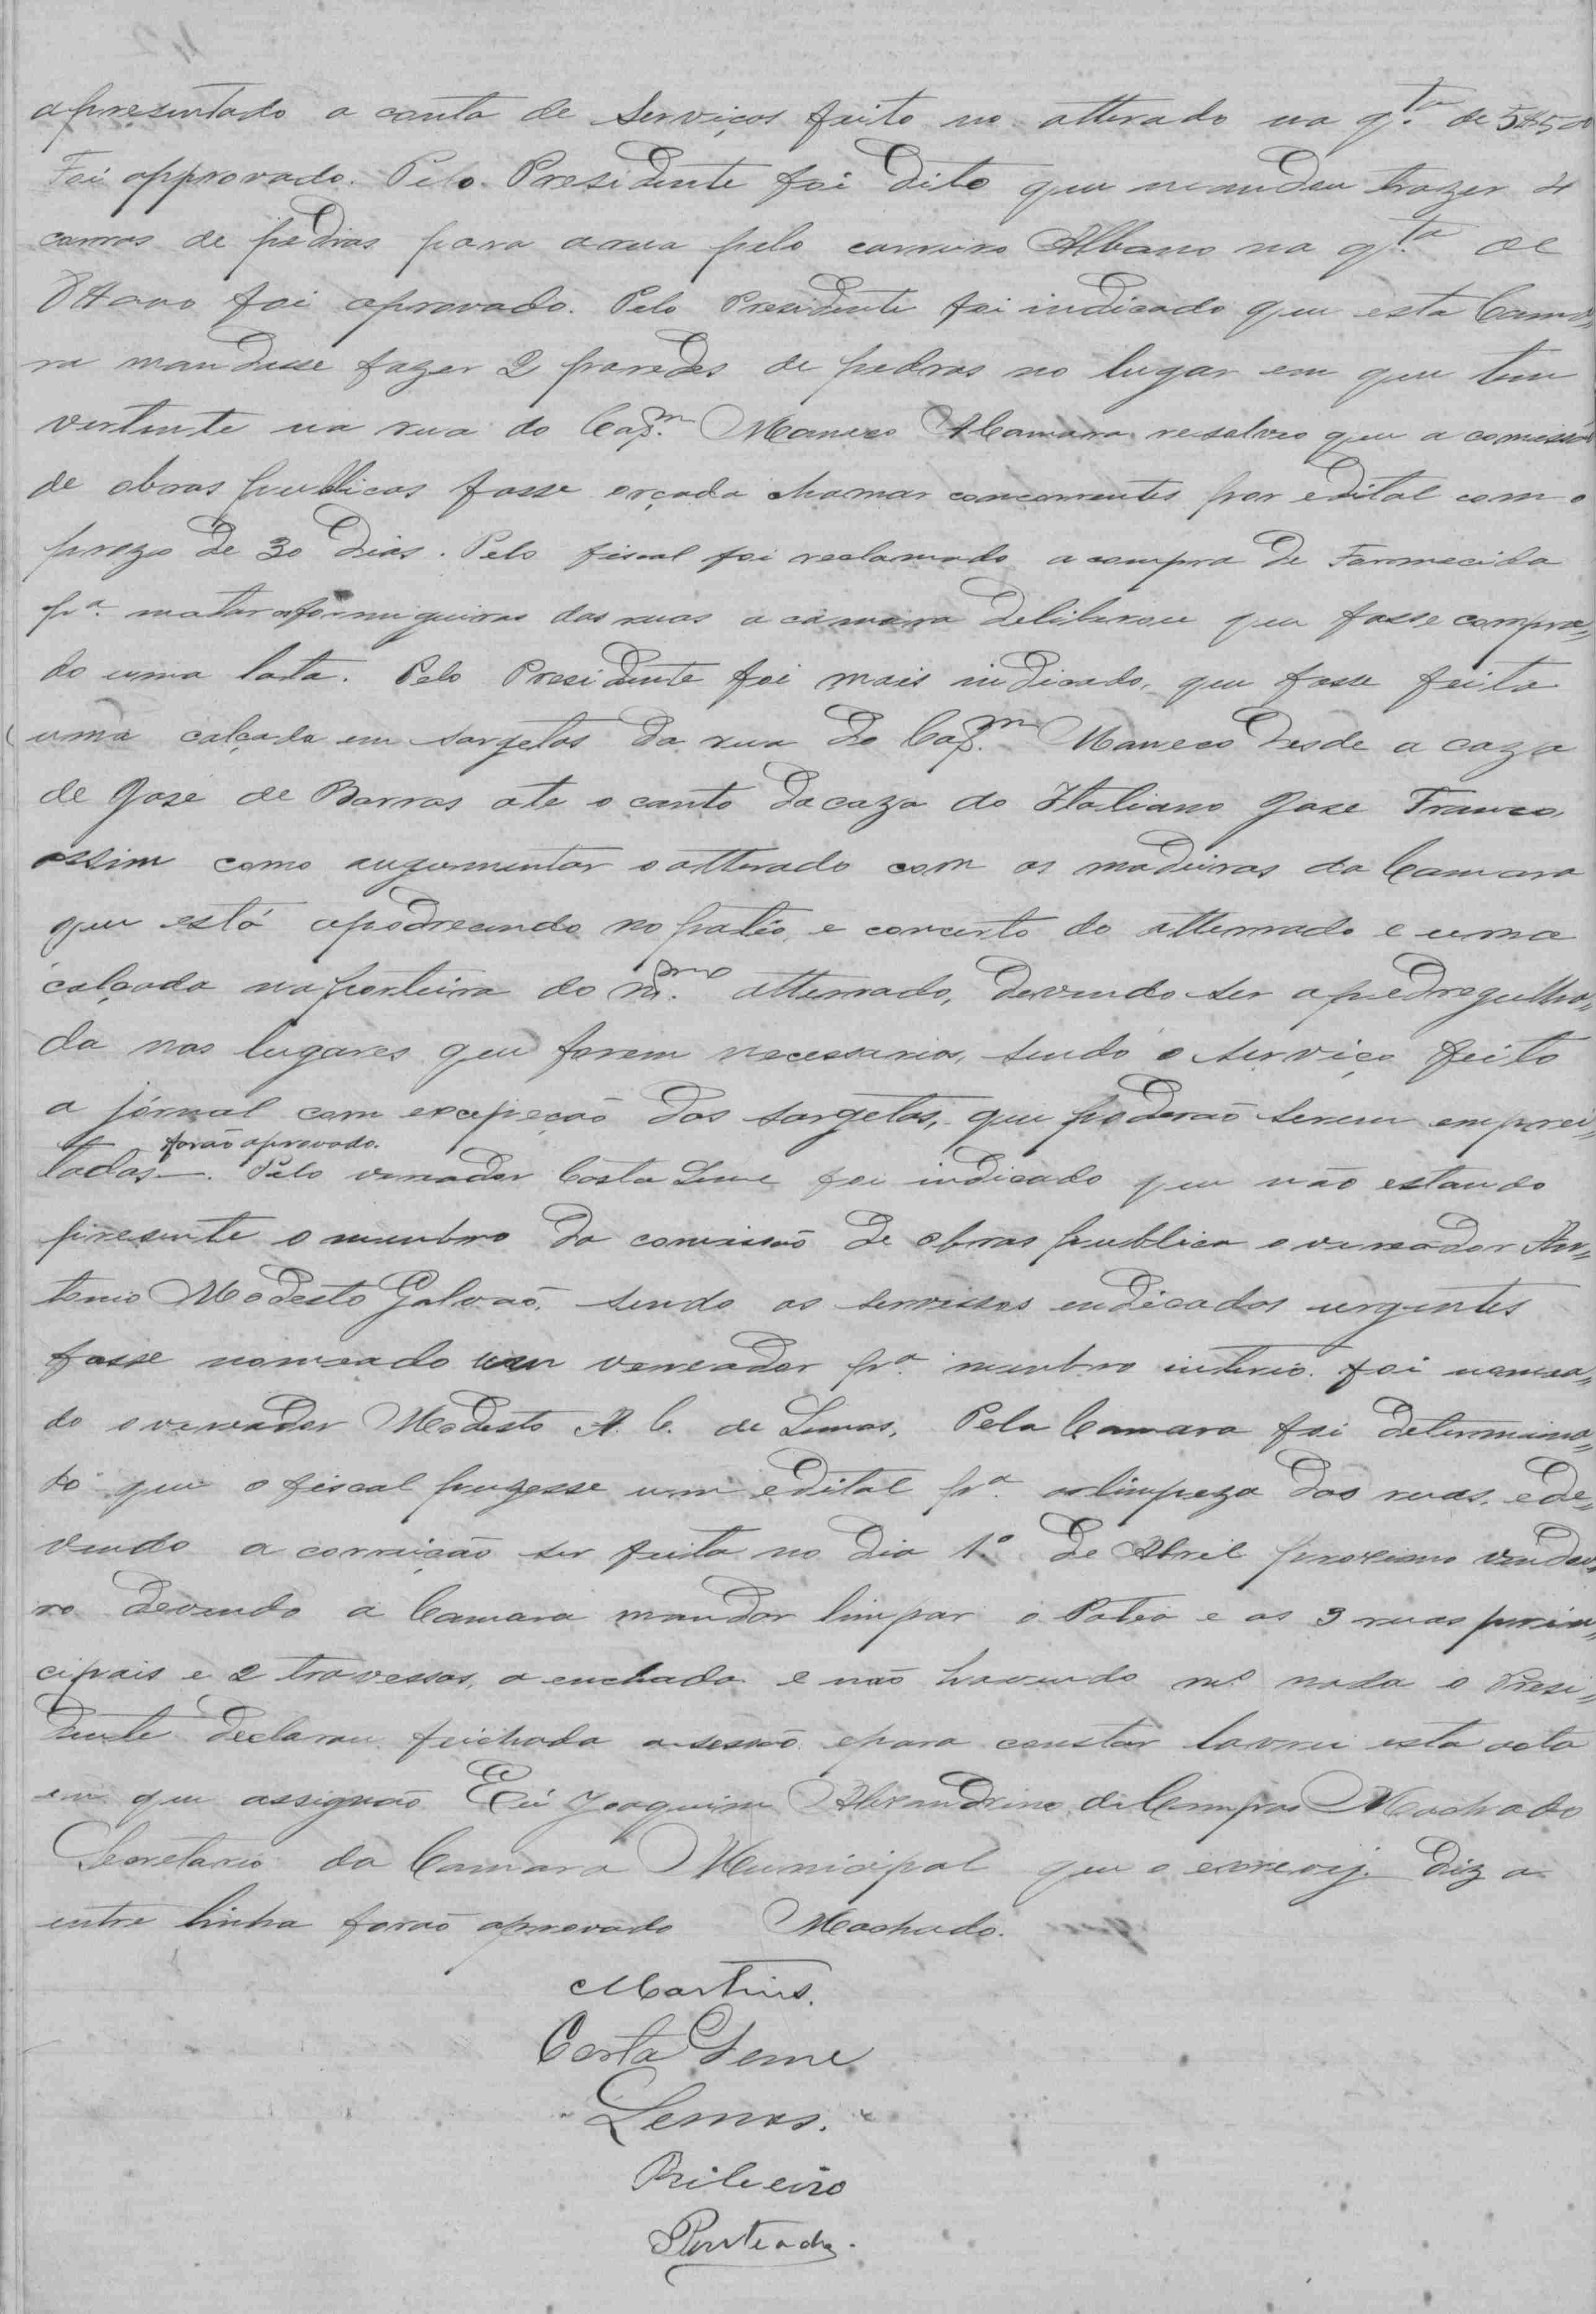 apresentado a conta de Serviços feito no atterado na q.ta de 5$500
Foi approvado. Pelo Presidente foi dito que mandou trazer 4
carros de pedras para a rua pelo carreiro Albano na q.ta de
8$000 foi aprovado. Pelo Presidente foi indicado que esta Cama=
ra mandasse fazer 2 paredes de pedras no lugar em que tem
vertente na rua do Cap.m Maneco A Camara resolveo que a comissão
de obras publicas fosse orçada chamar concorrentes por edital com o
prazo de 30 dias. Pelo fiscal foi reclamado a compra de Formecida
p.a matar os formigueiros das ruas a camara deliberou que fosse compra=
do uma lata. Pelo Presidente foi mais indicado, que fosse feita
uma calçada em sargetas da rua do Cap.m Maneco desde a caza
de Jose de Barros ate o canto da caza do Italiano Jose Franco,
assim como augumentar o atterado com as madeiras da Camara
que está apodrecendo no patio, e concerto do atterrado e uma
calçada na porteira do m.mo atterrado, devendo ser apedregulha=
da nos lugares que forem necessarios, sendo o serviço feito
a jornal com excepeção das sargetas, que poderão serem emprei=
forão aprovado.
tadas—. Pelo vereador Costa Leme foi indicado que não estando
presente o membro da comissão de obras publica o vereador An=
tonio Modesto Galvão, sendo os servissos indicados urgentes
fosse nomeado um vereador p.a membro interio. foi nomea=
do o vereador Modesto A. C. de Lemos, Pela Camara foi determina=
do que o fiscal puzesse um edital p.a a limpeza das ruas, e de=
vendo a correição ser feita no dia 1.o de Abril proximo vendou=
ro devendo a Camara mandar limpar o Pateo e as 3 ruas prin=
cipais e 2 travessas, a enchada e não havendo m.s nada o Presi=
dente declarou feichada a sessão e para constar lavrei esta acta
em que assignão Eu Joaquim Alexandrino de Campos Machado
Secretario da Camara Municipal que o escrevij. Diz a
entre linha forão aprovado Machado.
Martins.
Costa Leme
Lemos.
Ribeiro
Penteado.